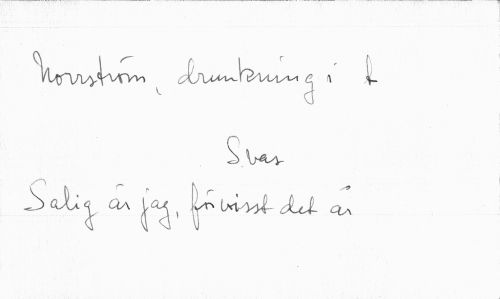 Norrström, drunkning i t
Svar
Salig är jag, förvisst det är